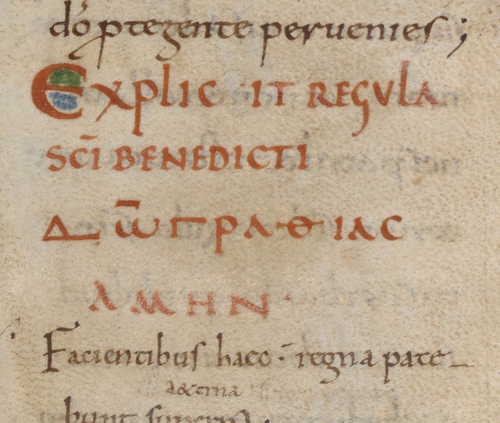 dō ꝓtegente peruenies ;
EXPLIC·IT REGULA
SC̄I BENEDICTI
Δω̅ΠΡΑΘΙΑC
ΑΜΗΝ·
Facientibus haec · regna pate-
a&erna
bunt superna.